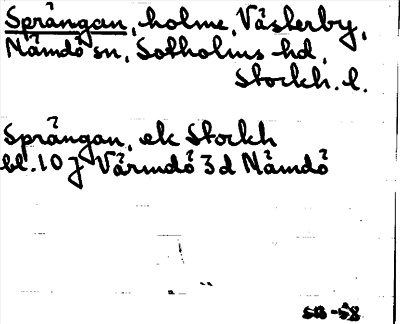 Sprängan, holme, Västerby,
Nämdö sn, Sotholms hd,
Stockh. l.
Sprängan, ek Stockh
bl. 10 j Värmdö 3d Nämdö
SB-58